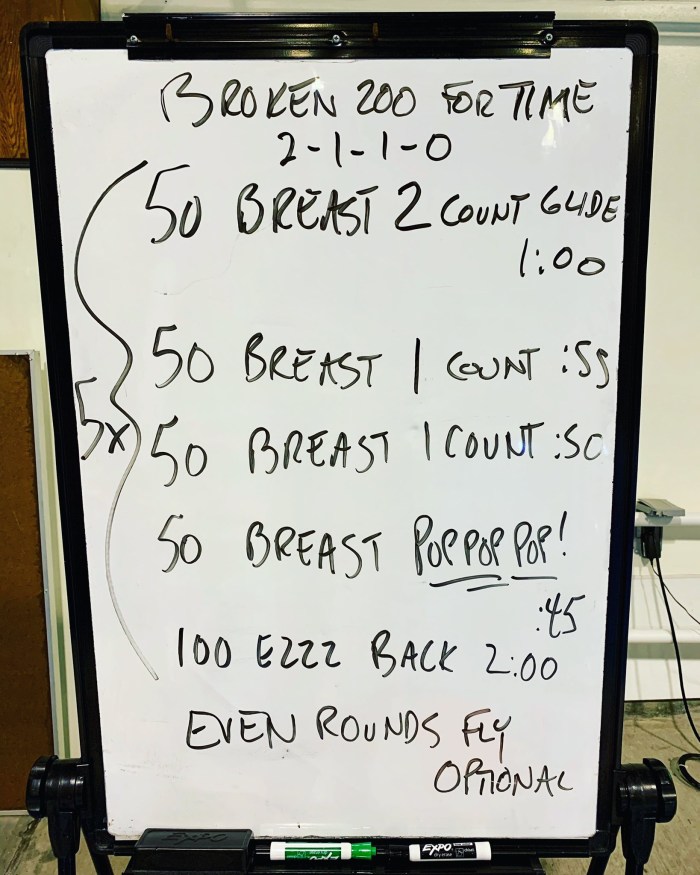 BROKEN 200 FOR TIME
2-1-1-0
50 BREAST 2 COUNT GLIDE
1:00
50 BREAST 1 COUNT :55
5x
50 BREAST 1 COUNT :50
50 BREAST POP POP POP!
:45
100 EZZZ BACK 2:00
EVEN ROUNDS FLY
OPTIONAL
EXPO
EXPO